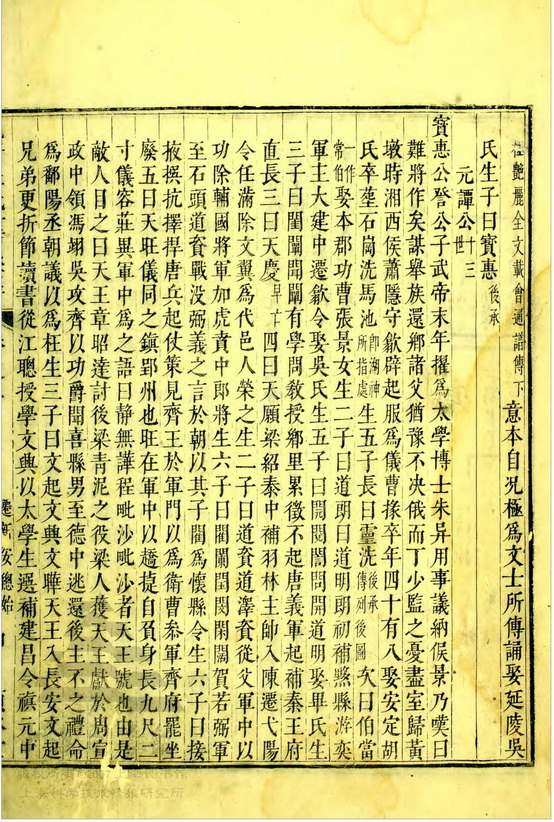 艷麗全文載會通譜傳下意本自況極爲文士所傳誦娶延陵吳
氏生子曰寳惠後承
元譚公十三世
寳惠公詧公子武帝末年擢爲太學博士朱异用事議納侯景乃嘆曰
難將作矣謀舉族還鄉諸父猶豫不決俄而丁少監之憂盡室歸黃
墩時湘西侯蕭隱守歙辟起服爲儀曹掾卒年四十有八娶安定胡
氏卒塟石崗洗馬池即湖神所指處生五子長曰靈洗後承傳列後圖次曰伯當
一作常伯娶本郡功曹張景女生二子曰道頭曰道明頭初補黟縣游奕
軍主大建中遷歙令娶吳氏生五子曰開閱誾問開道明娶畢氏生
三子曰閨闡閏闡有學問敎授鄉里累徵不起唐義軍起補秦王府
直長三曰天慶早亡四曰天願梁紹泰中補羽林主帥入陳遷弋陽
令任滿除文翼爲代邑人榮之生二子曰道資道澤資從父軍中以
功除輔國將軍加虎賁中郎將生六子曰閶闌閏閔閑闊賀若弼軍
至石頭道資戰没弼義之言於朝以其子闊爲懷縣令生六子曰接
掖撰抗擇捍唐兵起仗策見齊王於軍門以爲衛曹叅軍齊府罷坐
廢五曰天旺儀同之鎭郢州也旺在軍中以趫捷自頟身長九尺二
寸儀容莊異軍中爲之語曰静無譁程毗沙毗沙者天王號也由是
敵人目之曰天王章昭達討後梁青泥之役梁人獲天王獻於周宣
政中領馮翊吳攻齊以功爵聞喜縣男至德中逃還後主不之禮命
爲鄱陽丞朝議以爲枉生三子曰文起文典文曅天王入長安文起
兄弟更折節讀書從江聰授學文典以太學生選補建昌令禎元中
遷新安總始